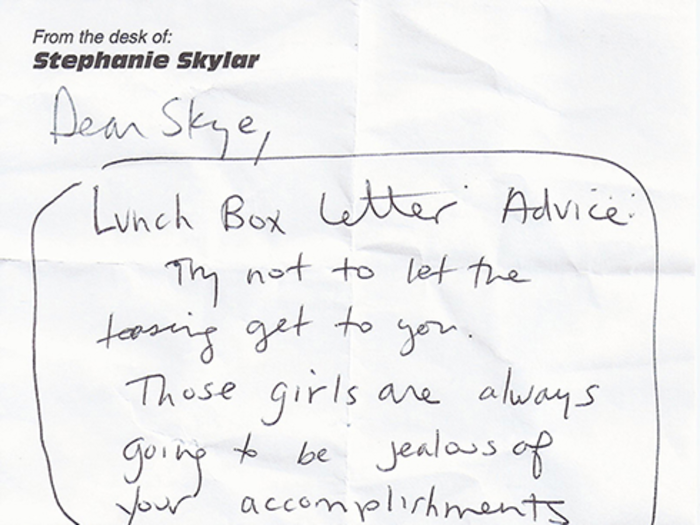 From the desk of:
Stephanie Skylar
Dear Skye,
Lunch Box Letter Advice:
Try not to let the
teasing get to you.
Those girls are always
going to be jealous of
your accomplishments